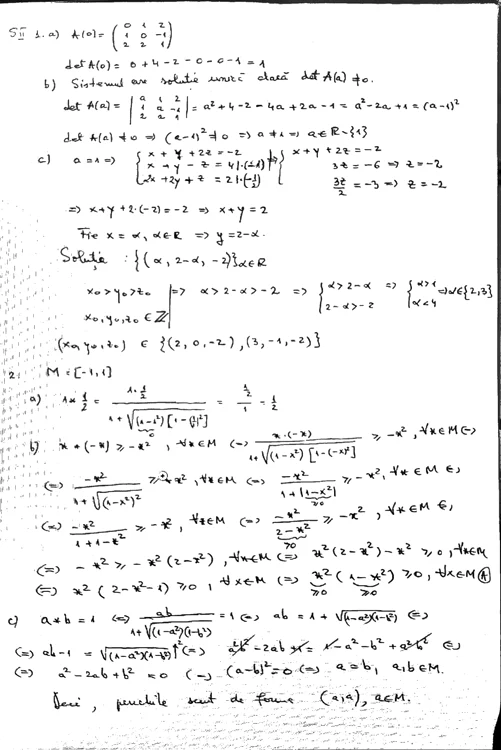 S II 1. a) A(0) = ( 0 1 2 / 1 0 -1 / 2 2 1 )
det A(0) = 0 + 4 - 2 - 0 - 0 - 1 = 1
b) Sistemul are soluție unică dacă det A(a) ≠ 0.
det A(a) = | a 1 2 / 1 a -1 / 2 2 1 | = a² + 4 - 2 - 4a + 2a - 1 = a² - 2a + 1 = (a-1)²
det A(a) ≠ 0 => (a-1)² ≠ 0 => a ≠ 1 => a ∈ R - {1}
c) a = 1 => { x + y + 2z = -2 / x + y - z = 4 |·(-1) / 2x + 2y + z = 2 |·(-1/2) => { x + y + 2z = -2 / 3z = -6 => z = -2 / 3z/2 = -3 => z = -2
=> x + y + 2·(-2) = -2 => x + y = 2
Fie x = α, α ∈ R => y = 2 - α.
Soluție : {(α, 2-α, -2)} α∈R
x0 > y0 > z0 | => α > 2-α > -2 => { α > 2-α / 2-α > -2 => { α > 1 / α < 4 => α ∈ {2,3}
x0, y0, z0 ∈ Z
(x0, y0, z0) ∈ {(2, 0, -2), (3, -1, -2)}
2. M = [-1, 1]
a) 1 * 1/2 = (1·1/2) / (1 + √((1-1²)[1-(1/2)²])) = (1/2)/1 = 1/2
b) x * (-x) ≥ -x², ∀x∈M (=) x·(-x) / (1 + √((1-x²)[1-(-x)²])) ≥ -x², ∀x∈M (=)
(=) -x² / (1 + √((1-x²)²)) ≥ -x², ∀x∈M (=) -x² / (1 + |1-x²|) ≥ -x², ∀x∈M (=)
(=) -x² / (1+1-x²) ≥ -x², ∀x∈M (=) -x² / (2-x²) ≥ -x², ∀x∈M (=)
(=) -x² ≥ -x²(2-x²), ∀x∈M (=) x²(2-x²) - x² ≥ 0, ∀x∈M
(=) x²(2-x²-1) ≥ 0, ∀x∈M (=) x²(1-x²) ≥ 0, ∀x∈M (A)
c) a * b = 1 (=) ab / (1 + √((1-a²)(1-b²))) = 1 (=) ab = 1 + √((1-a²)(1-b²)) (=)
(=) ab - 1 = √((1-a²)(1-b²)) |² (=) a²b² - 2ab + 1 = 1 - a² - b² + a²b² (=)
(=) a² - 2ab + b² = 0 (=) (a-b)² = 0 (=) a = b, a,b ∈ M.
Deci, punctele sunt de forma (a,a), a∈M.